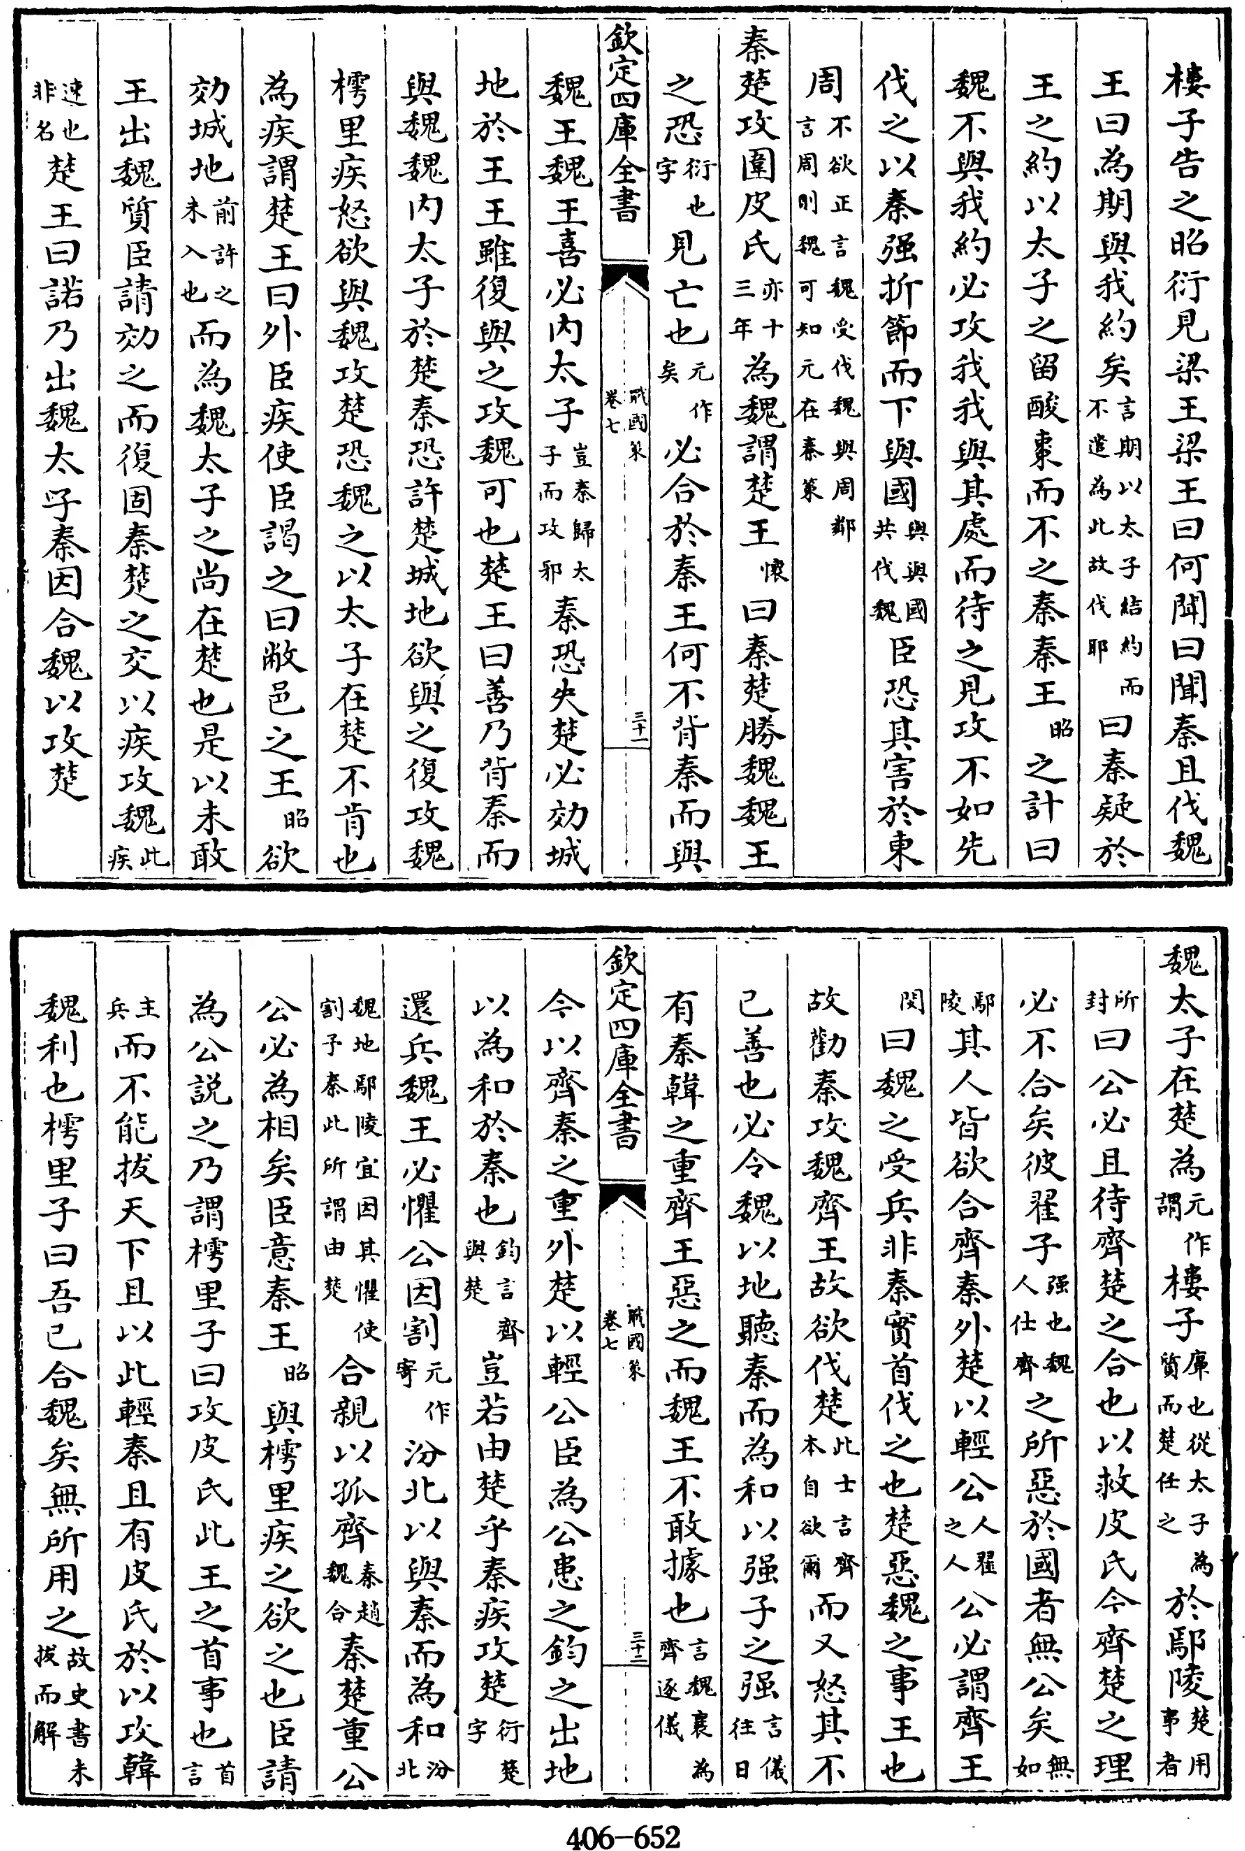 樓子告之昭衍見梁王梁王曰何聞曰聞秦且伐魏
王曰為期與我約矣言期以太子結約而不遣為此故伐耶曰秦疑於
王之約以太子之留酸棗而不之秦秦王昭之計曰
魏不與我約必攻我我與其處而待之見攻不如先
伐之以秦强折節而下與國與與國共伐魏臣恐其害於東
周不欲正言魏受伐魏與周鄰言周則魏可知元在秦策
秦楚攻圍皮氏亦十三年為魏謂楚王懷曰秦楚勝魏魏王
之恐衍也字見亡也元作矣必合於秦王何不背秦而與
欽定四庫全書
戰國策
卷七
三十一
魏王魏王喜必內太子豈秦歸太子而攻邪秦恐失楚必効城
地於王王雖復與之攻魏可也楚王曰善乃背秦而
與魏魏内太子於楚秦恐許楚城地欲與之復攻魏
樗里疾怒欲與魏攻楚恐魏之以太子在楚不肯也
為疾謂楚王曰外臣疾使臣謁之曰敝邑之王昭欲
効城地前許之未入也而為魏太子之尚在楚也是以未敢
王出魏質臣請効之而復固秦楚之交以疾攻魏此疾
速也非名楚王曰諾乃出魏太子秦因合魏以攻楚
魏太子在楚為元作謂樓子庳也從太子為質而楚任之於鄢陵楚用事者
所封曰公必且待齊楚之合也以救皮氏今齊楚之理
必不合矣彼翟子强也魏人仕齊之所惡於國者無公矣無如
鄢陵其人皆欲合齊秦外楚以輕公人翟之人公必謂齊王
閔曰魏之受兵非秦實首伐之也楚惡魏之事王也
故勸秦攻魏齊王故欲伐楚此士言齊本自欲爾而又怒其不
已善也必令魏以地聽秦而為和以强子之强言儀往日
有秦韓之重齊王惡之而魏王不敢據也言魏襄為齊逐儀
欽定四庫全書
戰國策
卷七
三十二
今以齊秦之重外楚以輕公臣為公患之鈞之出地
以為和於秦也鈞言齊與楚豈若由楚乎秦疾攻楚衍楚字
還兵魏王必懼公因割元作寄汾北以與秦而為和汾北
魏地鄢陵宜因其懼使割予秦此所謂由楚合親以孤齊秦趙魏合秦楚重公
公必為相矣臣意秦王昭與樗里疾之欲之也臣請
為公説之乃謂樗里子曰攻皮氏此王之首事也首言
主兵而不能拔天下且以此輕秦且有皮氏於以攻韓
魏利也樗里子曰吾已合魏矣無所用之故史書未拔而解
406-652